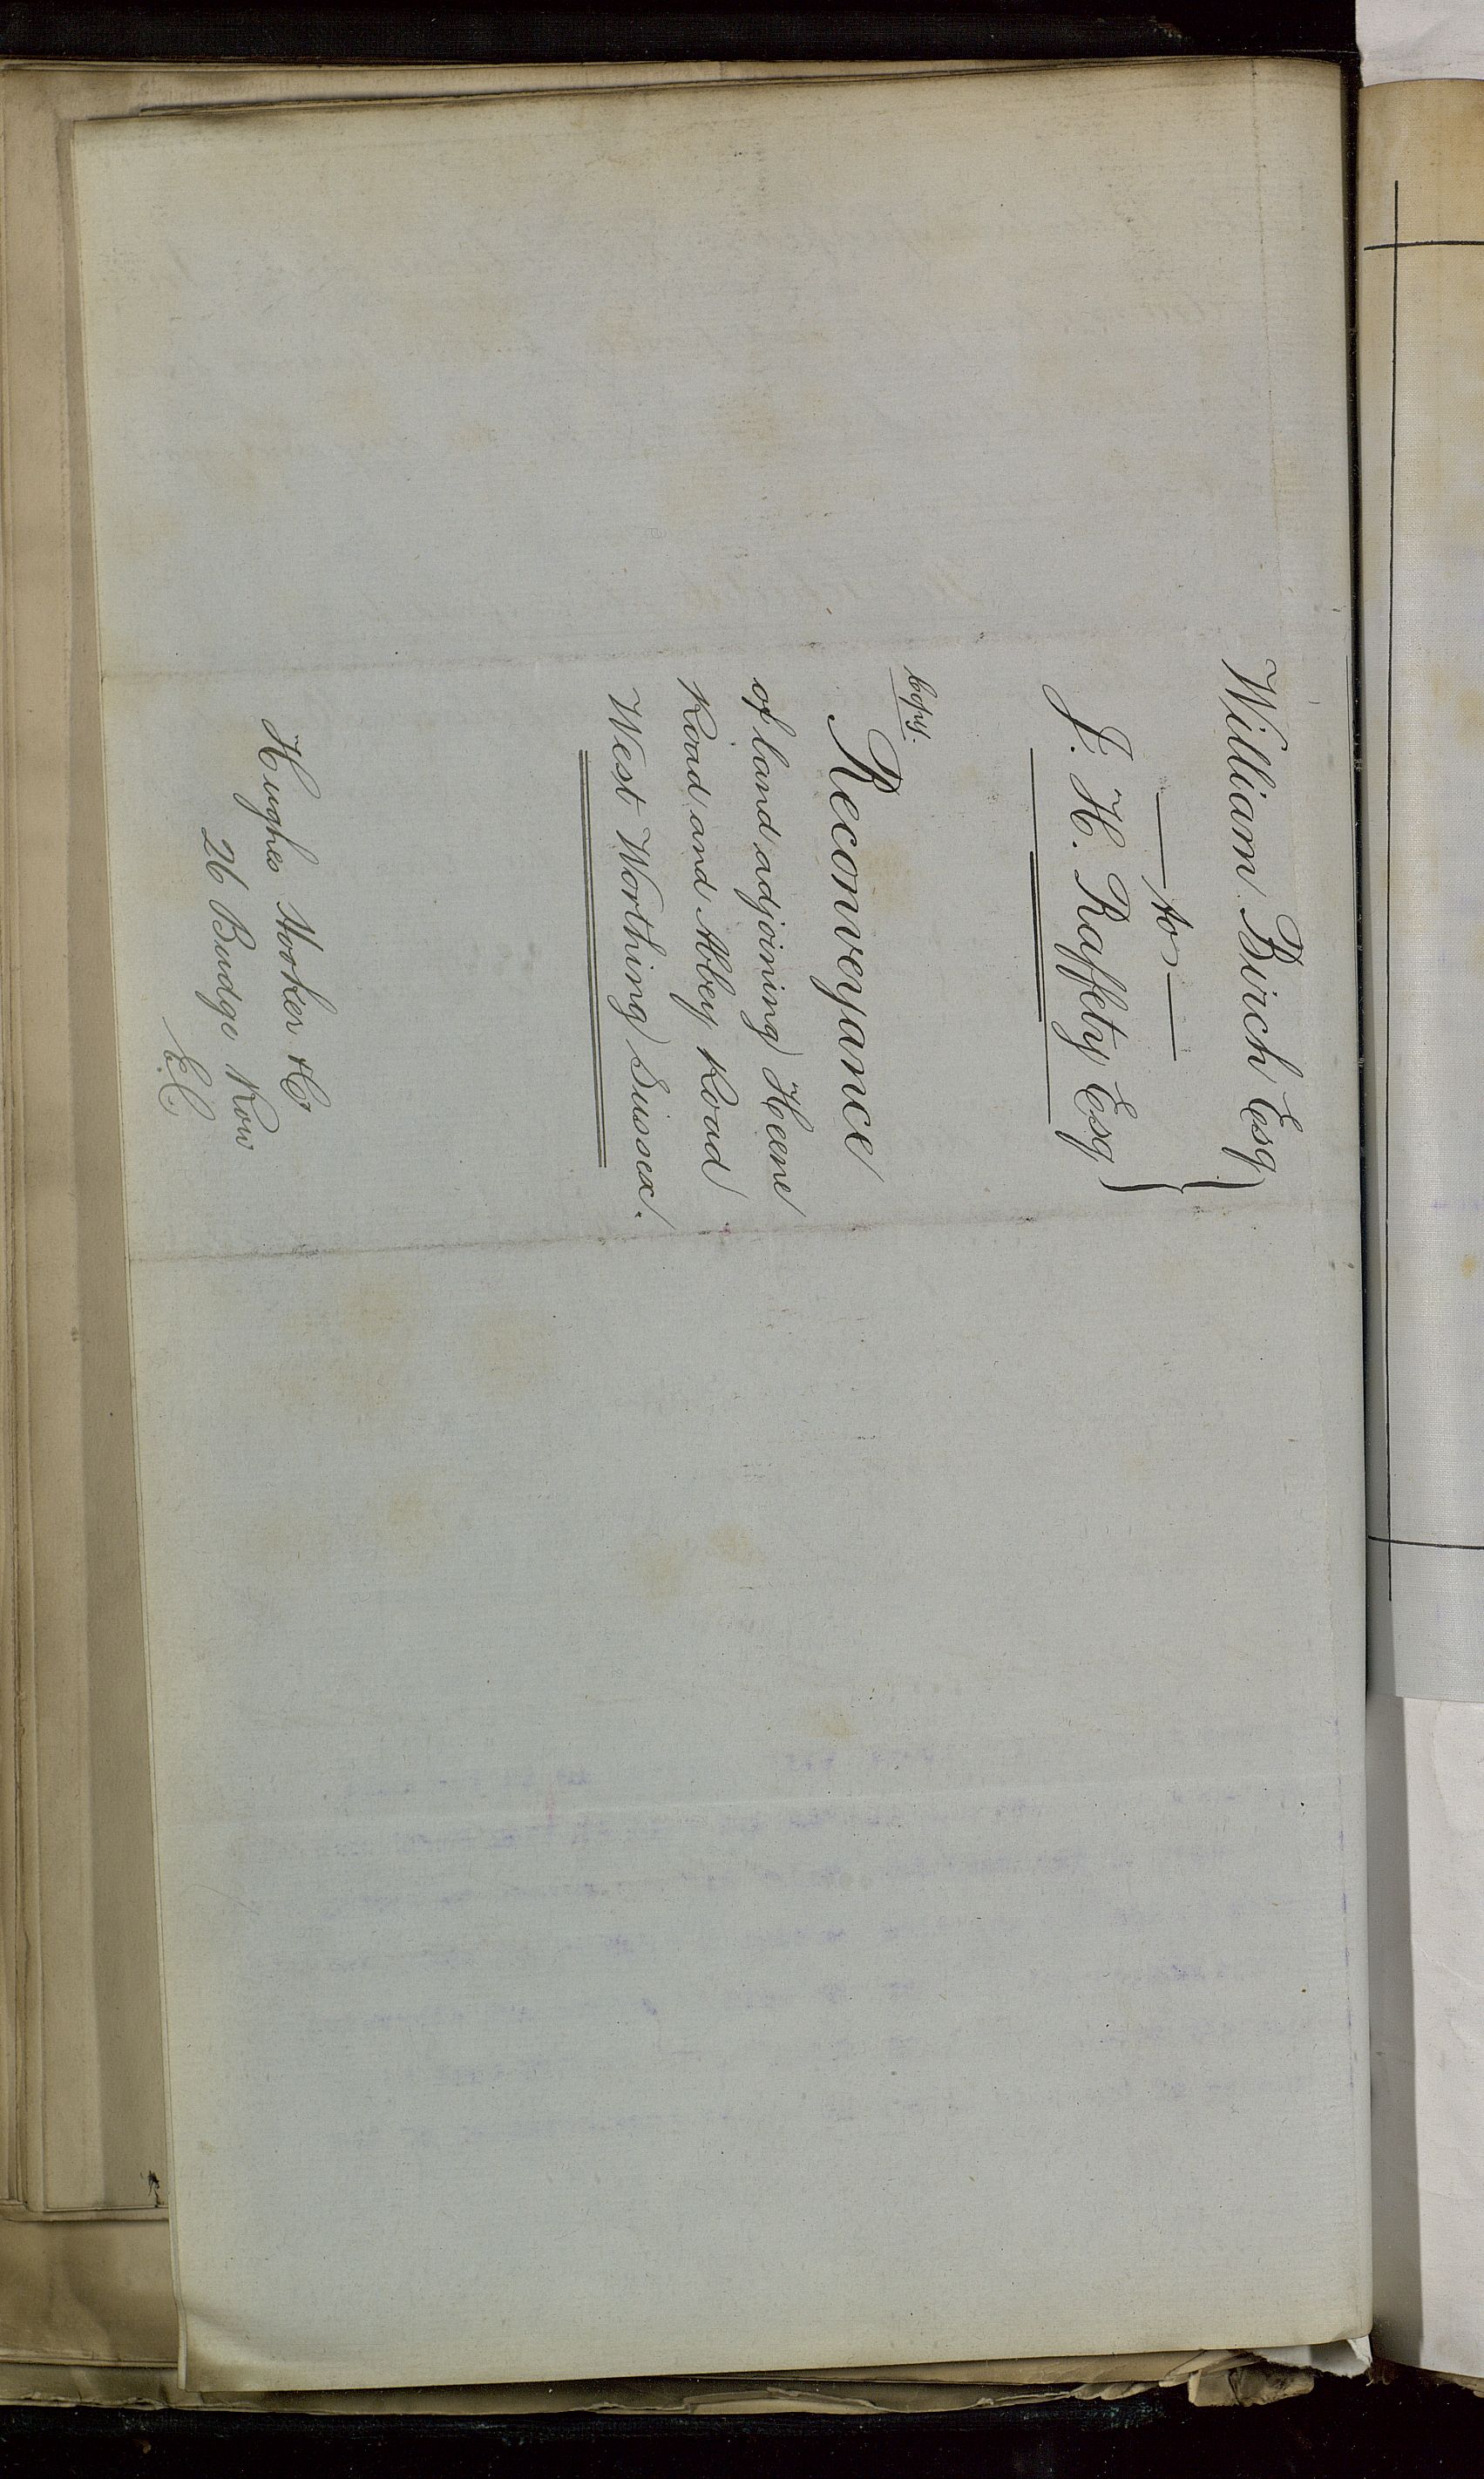 William Birch Esq
to
J. H. Raffety Esq
Copy.
Reconveyance
of land adjoining Heene
Road and Abbey Road
West Worthing Sussex.
Hughes Hooker & Co
26 Budge Row
E.C.